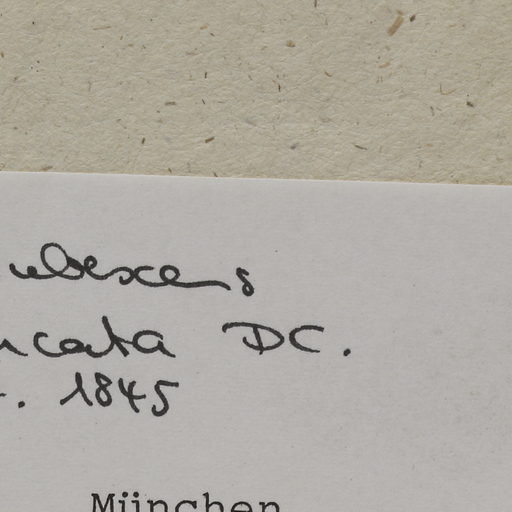 ubescens
ncata DC.
. 1845
München